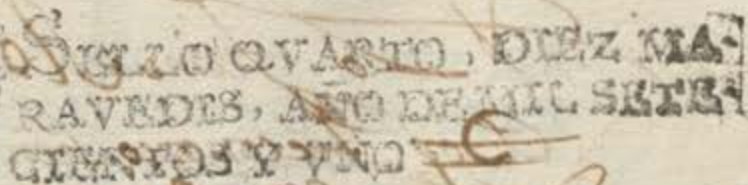 SELLO QVARTO, DIEZ MA-
RAVEDIS, AÑO DE MIL SETE-
CIENTOS Y VNO